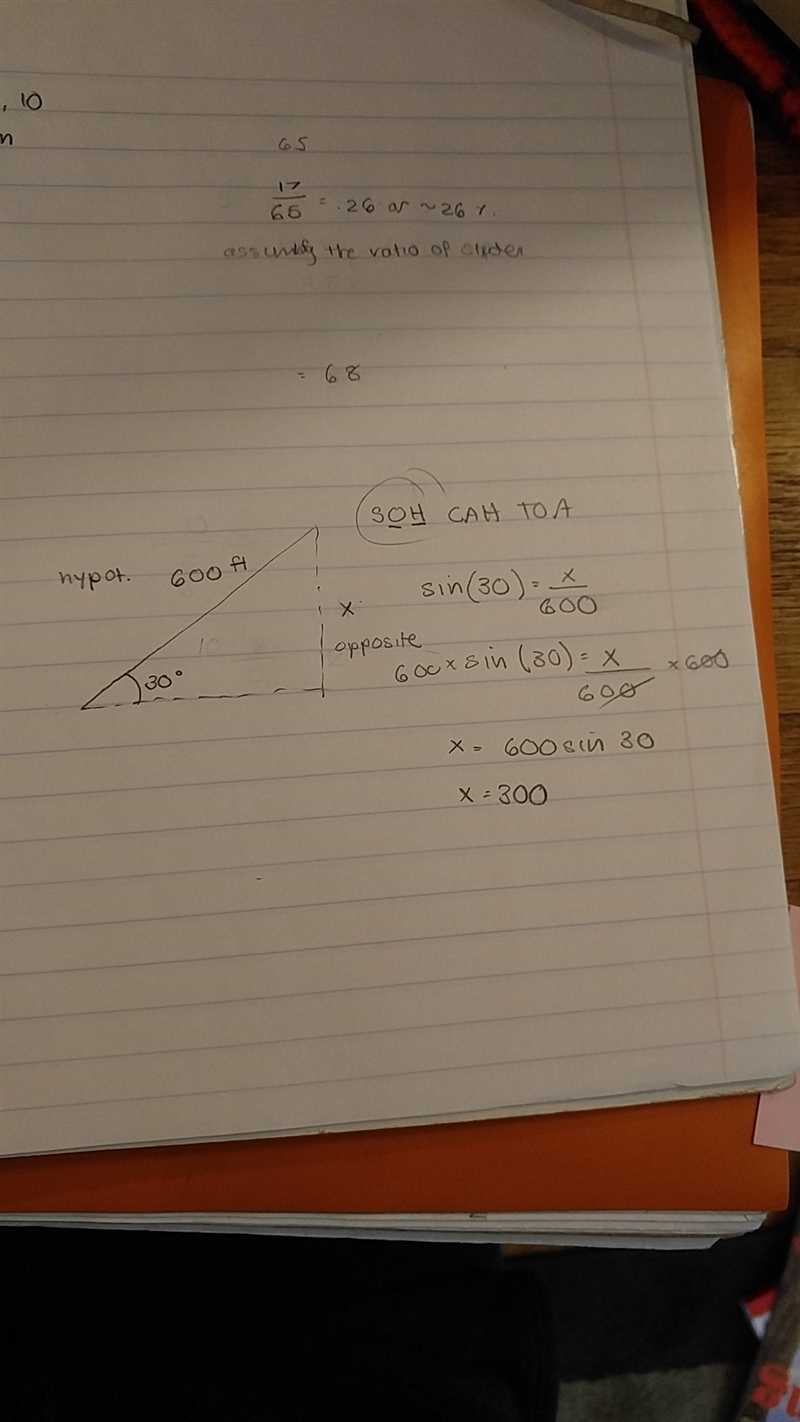 , 10
n
65
17
65 = .26 or ~26%.
the ratio of
= 68
SOH CAH TOA
hypot. 600 ft
sin(30) = x
600
x
opposite
30°
600 x sin (30) = x x 600
600
x = 600 sin 30
x = 300